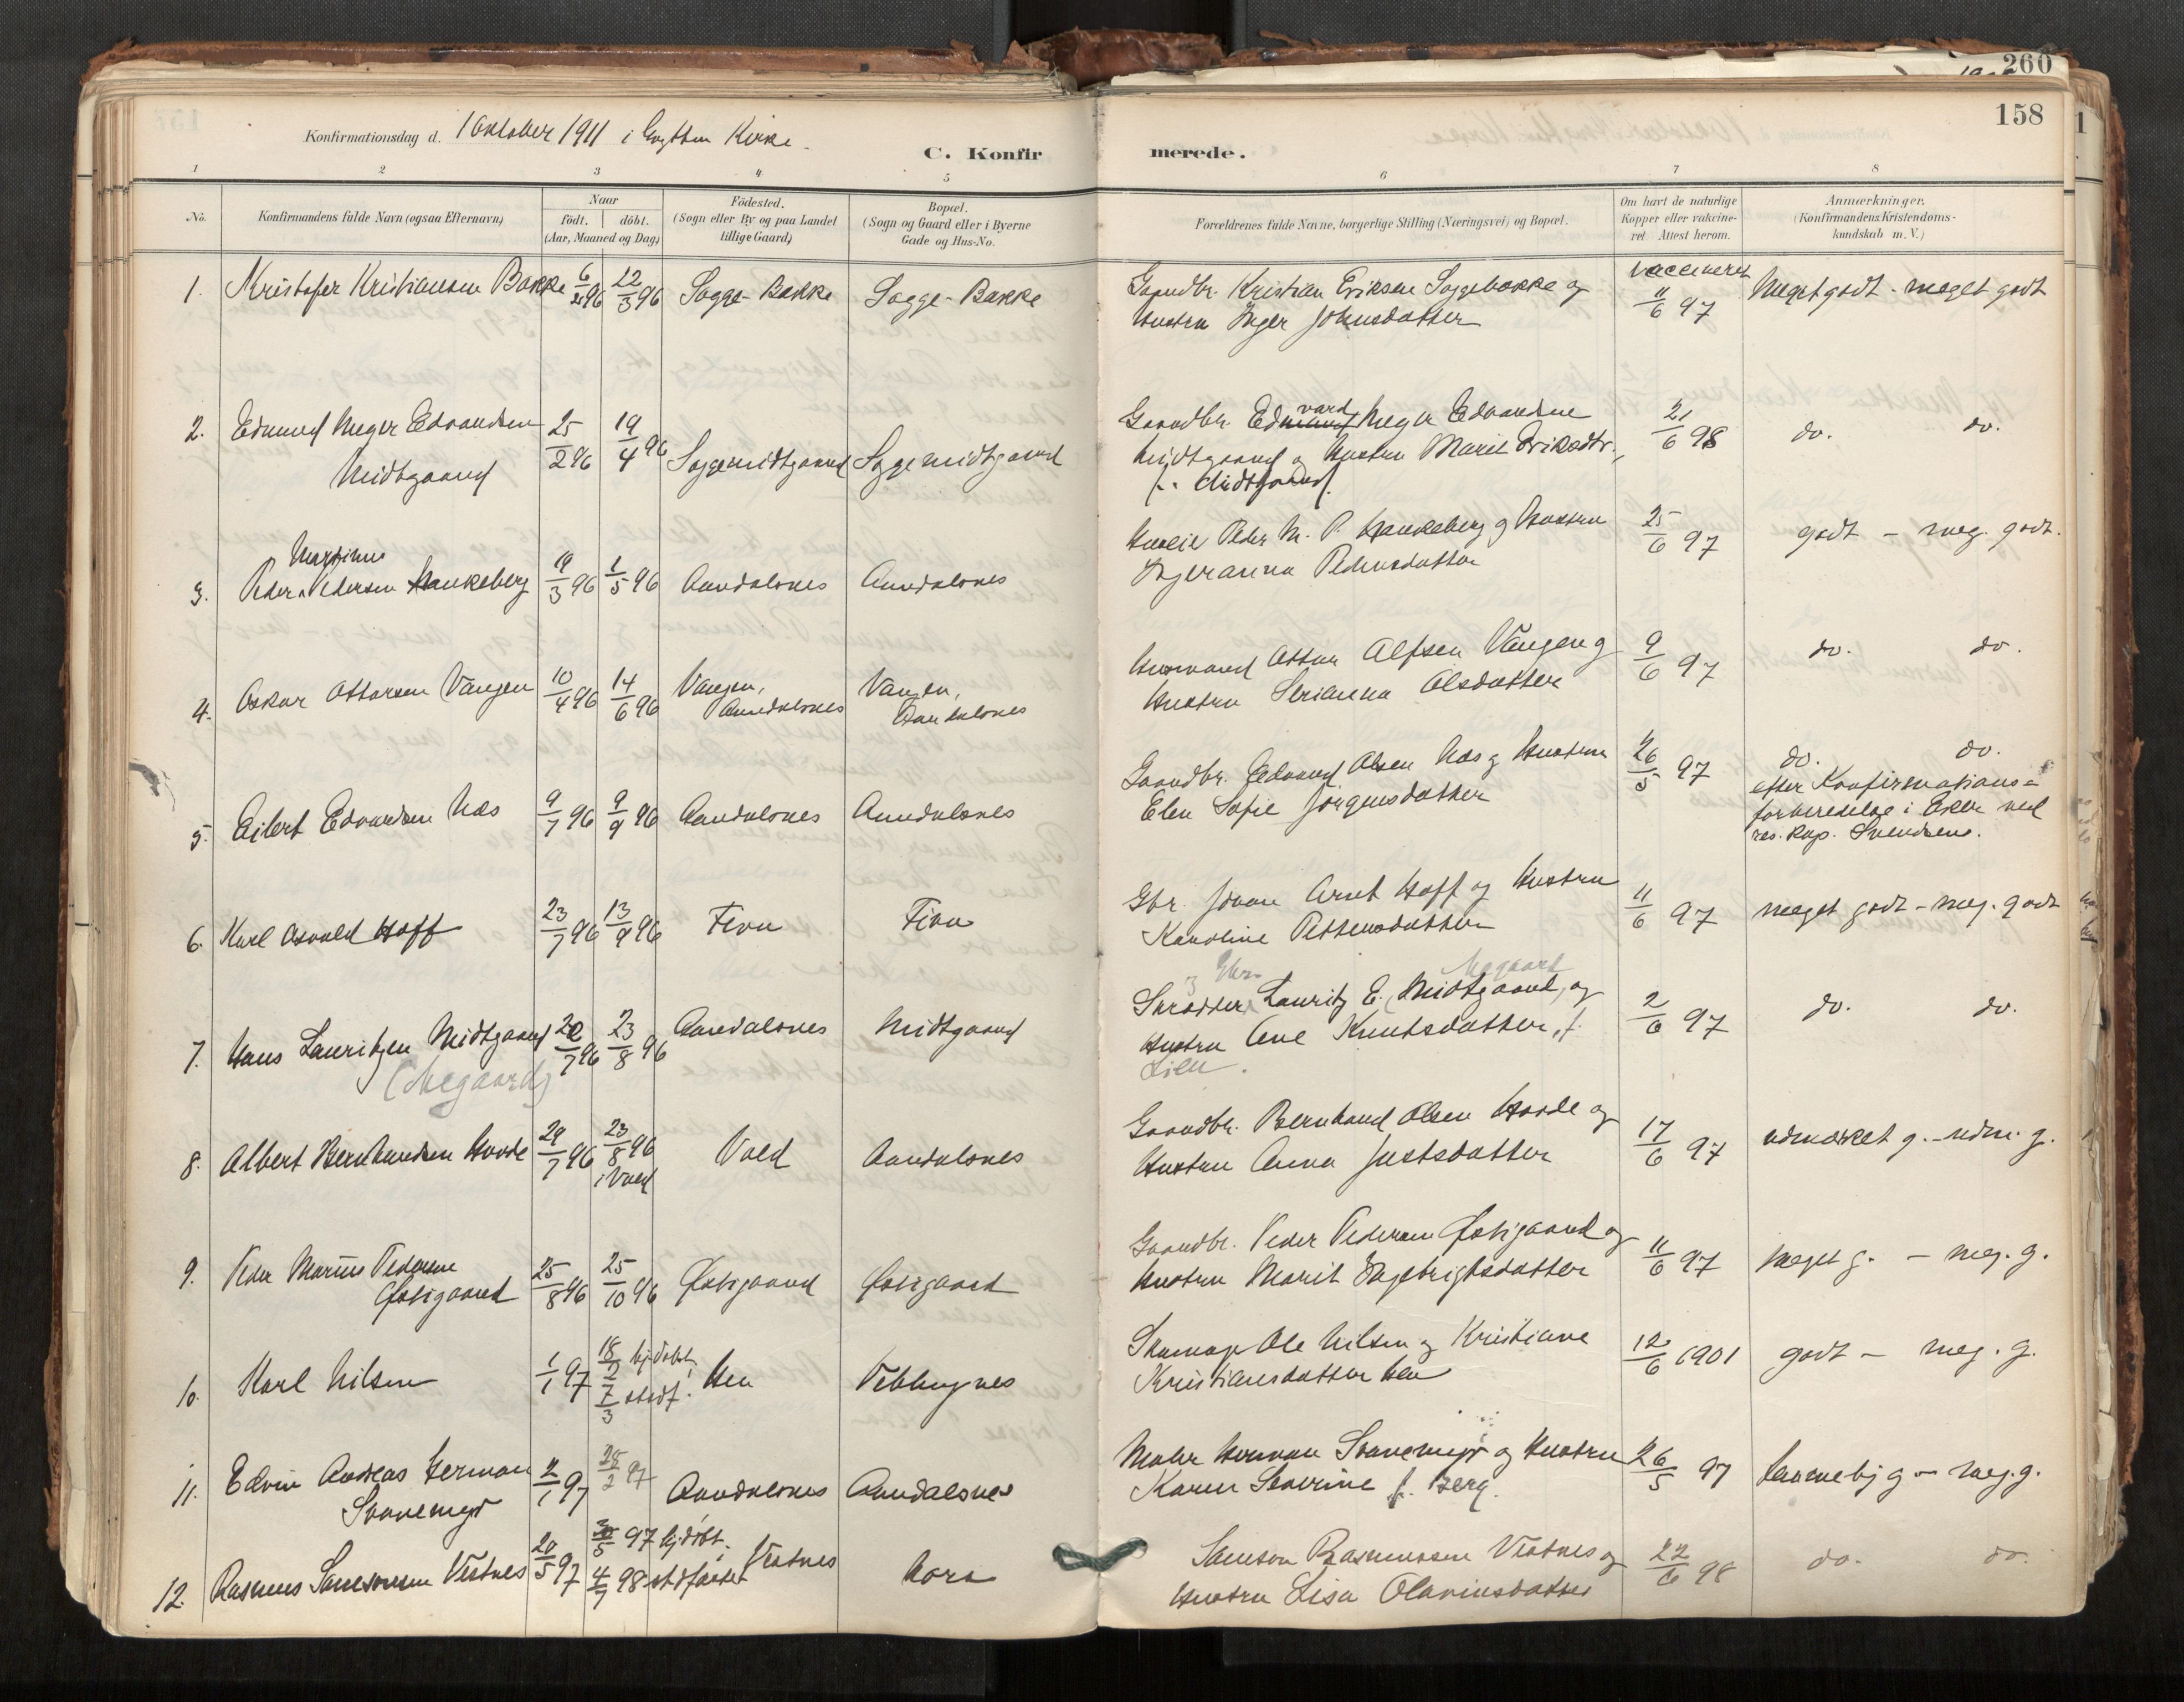 260
158
Konfirmationsdag d. 1 Oktober 1911 i Grytten Kirke.
C. Konfirmerede.
1 2 3 4 5 6 7 8
No.
Konfirmandens fulde Navn (ogsaa Efternavn)
Naar
födt. döbt.
(Aar, Maaned og Dag)
Födested.
(Sogn eller By og paa Landet
tillige Gaard)
Bopæl.
(Sogn og Gaard eller i Byerne
Gade og Hus-No.
Forældrenes fulde Navne, borgerlige Stilling (Næringsvei) og Bopæl.
Om havt de naturlige
Kopper eller vakcine-
ret. Attest herom.
Anmærkninger.
(Konfirmandens Kristendoms-
kundskab m. V.)
1. Kristofer Kristiansen Bakke 6/2 96 22/3 96 Sogge-Bakke Sogge-Bakke
Gaardbr. Kristian Eriksen Soggebakke og
Hustru Inger Johnsdatter
vaccineret
11/6 97 Meget godt - meget godt
2. Edmund Meyer Edvardsen
Midtgaard
25/2 96 19/4 96 Soggemidtgaard Soggemidtgaard
Gaardbr. Edvard Meyer Edvardsen
Midtgaard og Hustru Marit Eriksdtr.,
f. Midtgaard.
21/6 98 do. do.
3. Peder Martinus Pedersen Haukeberg 19/3 96 1/5 96 Aandalsnes Aandalsnes
Peder M. P. Haukeberg og Hustru
Ingeranna Pedersdatter
25/6 97 godt - meg. godt.
4. Oskar Ottarsen Vangen 10/4 96 14/6 96 Vangen,
Aandalsnes
Vangen,
Aandalsnes
Ottar Alfsen Vangen og
Hustru Serianna Olsdatter
9/6 97 do. do.
5. Eilert Edvardsen Næs 9/7 96 9/9 96 Aandalsnes Aandalsnes
Gaardbr. Edvard Olsen Næs og Hustru
Elen Sofie Jørgensdatter
26/5 97 do. do.
efter Konfirmations-
forberedelse i Eker ved
res. kap. Svendsen.
6. Karl Osvald Hoff 23/7 96 13/9 96 Fiva Fiva
Gbr. Johan Arnt Hoff og Hustru
Karoline Pettersdatter
11/6 97 meget godt - meg. godt
7. Hans Lauritzen Midtgaard
(Negaard)
22/7 96 23/8 96 Aandalsnes Midtgaard
og Gbr. Negaard
Skrædder Lauritz E. Midtgaard, og
Hustru Ane Knutsdatter, f.
Lien.
2/6 97 do. do.
8. Albert Bernhardsen Hovde 29/7 96 23/8 96
i Vold
Vold Aandalsnes
Gaardbr. Bernhard Olsen Hovde og
Hustru Anna Justsdatter
17/6 97 udmærket g. - udm. g.
9. Peder Marius Pedersen
Østigaard
25/8 96 25/10 96 Østigaard Østigaard
Gaardbr. Peder Pedersen Østigaard og
Hustru Marit Ingebrigtsdatter
11/6 97 Meget g. - meg. g.
10. Karl Nilsen 1/1 97 18/2 hj.døbt,
7/3 stadf.
Hen Veblungsnes
Skomager Ole Nilsen og Kristiane
Kristiansdatter Hen
12/6 1901 godt - meg. g.
11. Edvin Andreas Herman
Svanemyr
2/1 97 28/2 97 Aandalsnes Aandalsnes
Maler Herman Svanemyr og Hustru
Karen Severine f. Berg.
26/5 97 g - meg. g.
12. Rasmus Samsonsen Vestnes 20/5 97 30/5 97 hj.døbt.
4/7 98 stadfæstet
Vestnes Mora
Samson Rasmussen Vestnes og
Hustru Lisa Olaviusdatter
22/6 98 do. do.